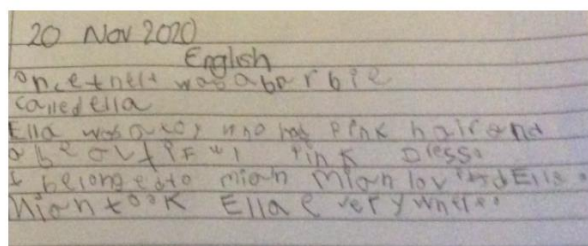 20 Nov 2020
English
Once there was a barbie
called ella
Ella was who has pink hair and
a beautiful pink Dress.
I belonged to miah miah lov Ella.
Miah took Ella every where.